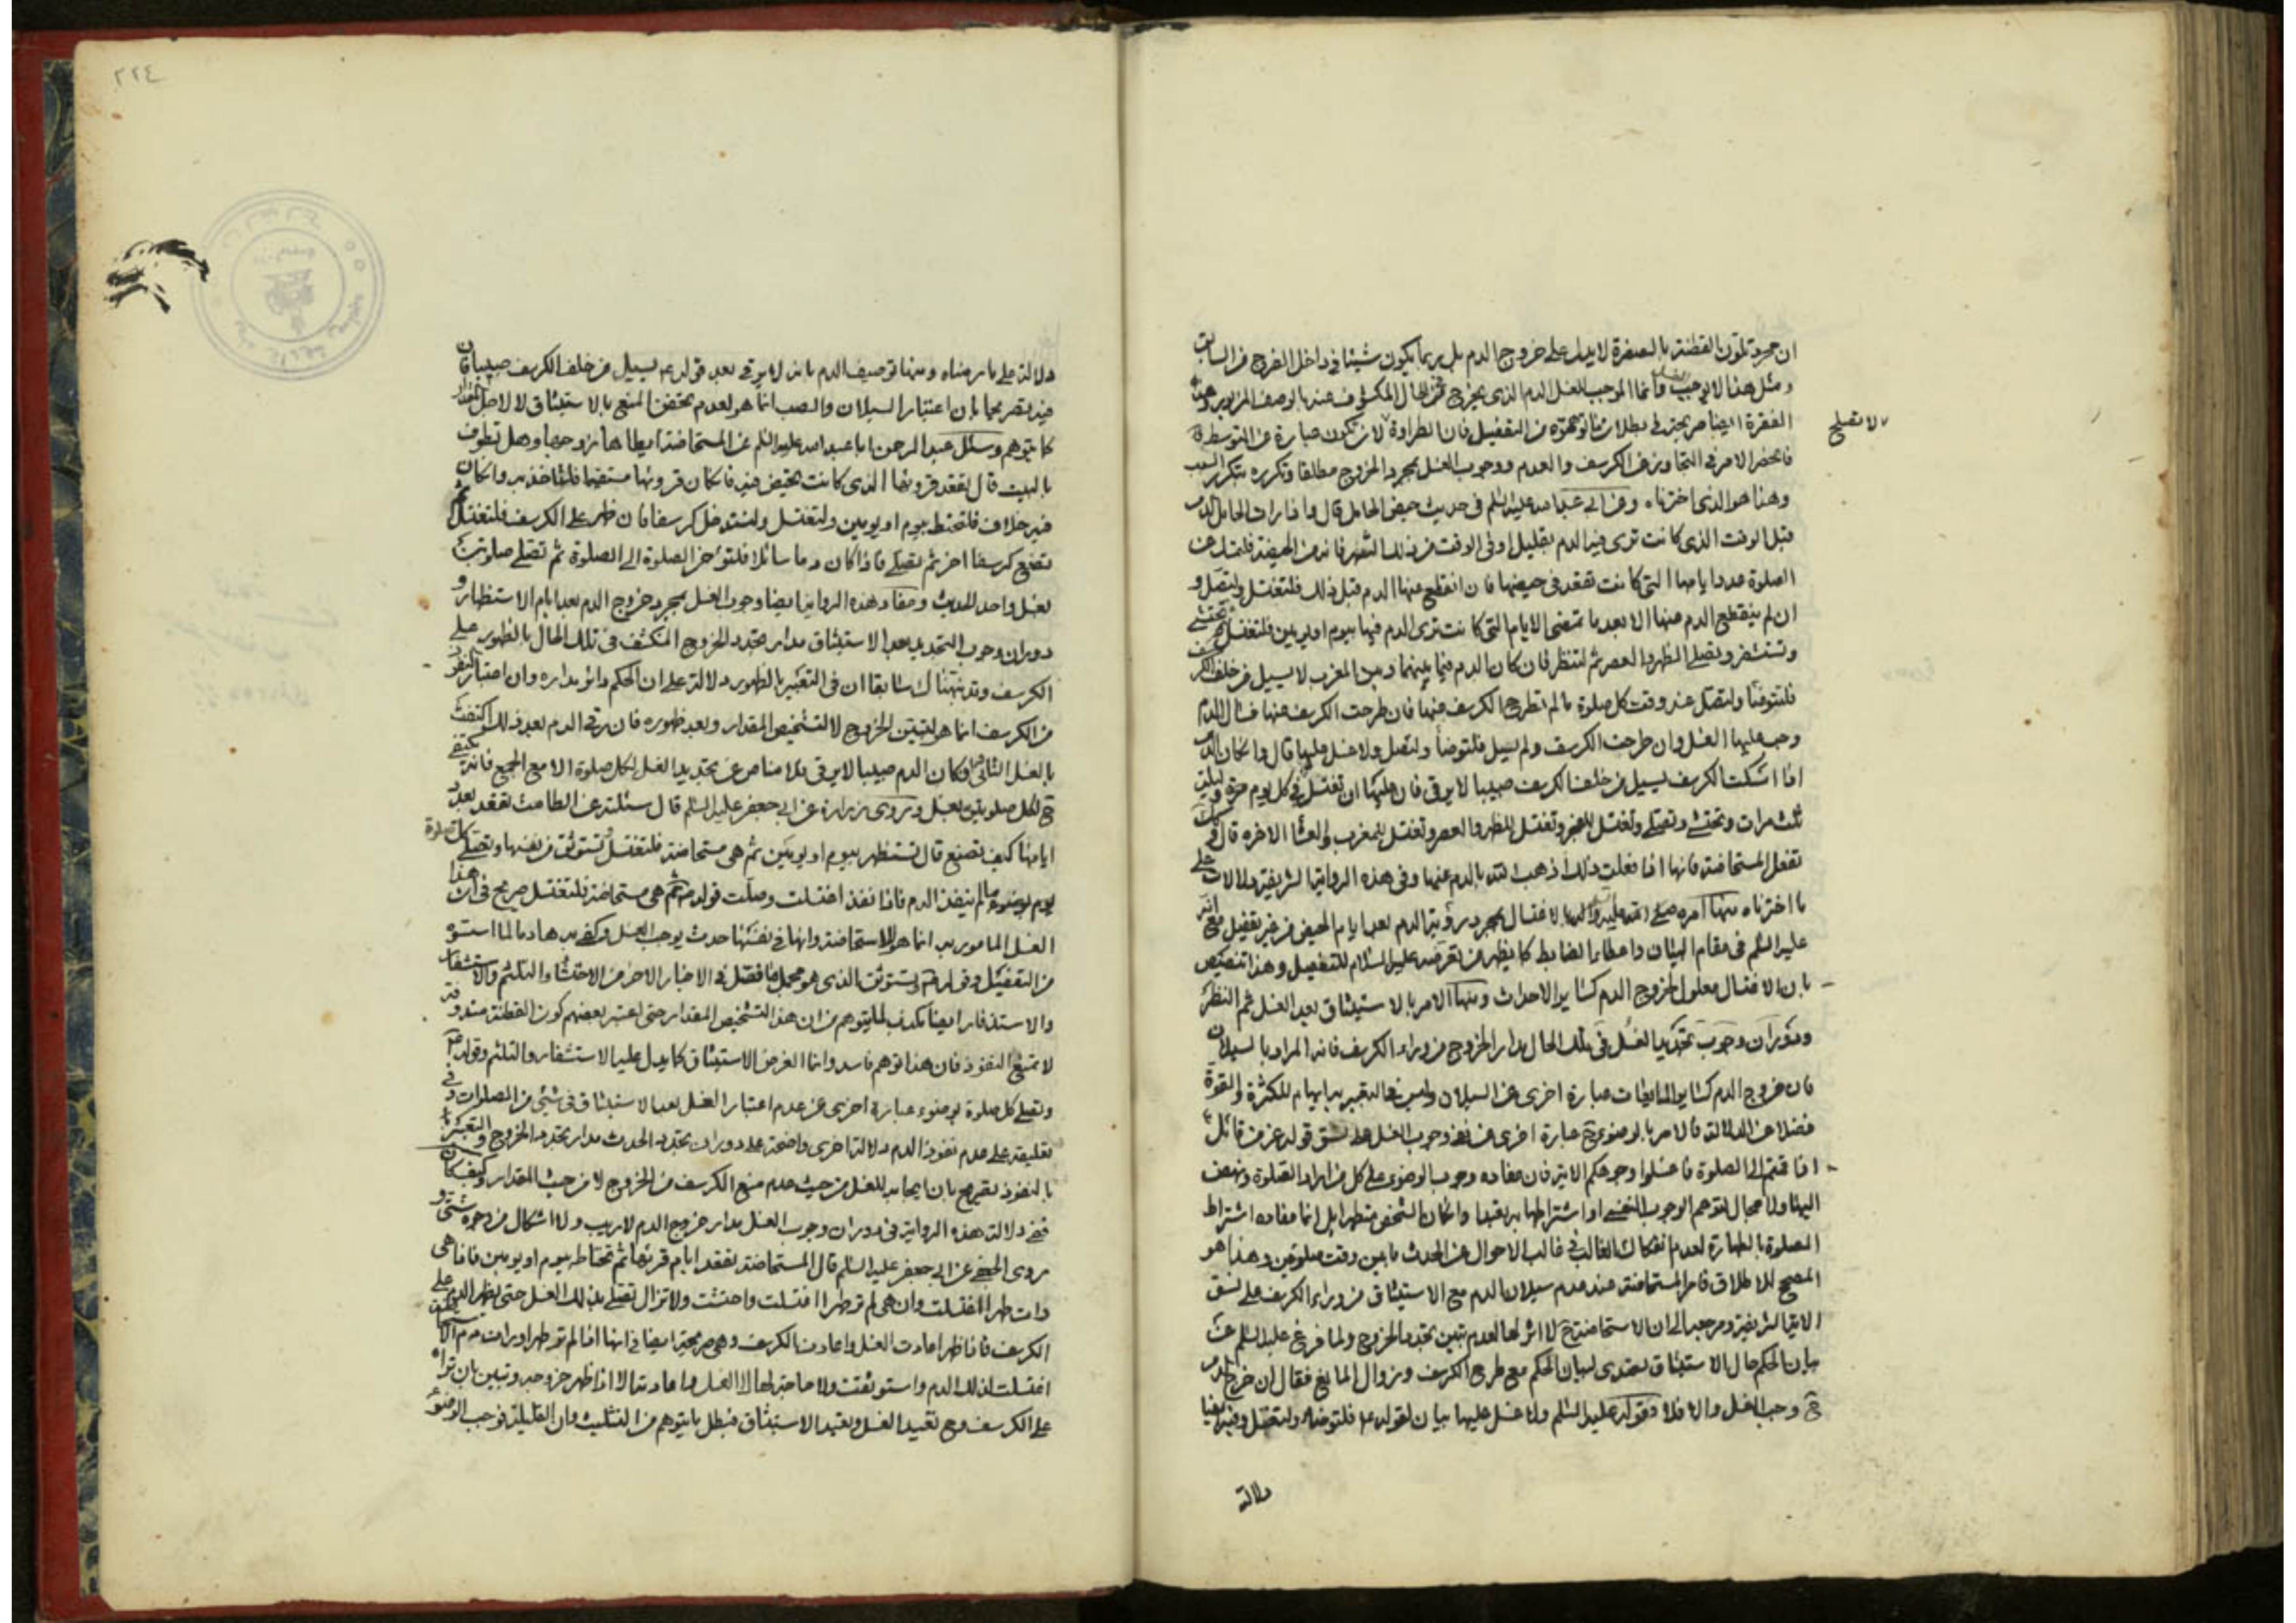 ان مجرد تلون القطنة بالصفرة لا يدل على خروج الدم بل ربما يكون شيئا في داخل الفرج من السابق
ومثل هذا لا يوجب الغسل وانما الموجب للغسل الدم الذي يخرج في الحال المكشوف عنه بالوصف المزبور وهذه
الفقرة ايضا صريحة في بطلان ما توهموه من التفصيل فان الطراوة لان تكون عبارة عن المتوسطة
لا تصلح
فانحصر الامر في التجاوز عن الكرسف والعدم ووجوب الغسل بمجرد الخروج مطلقا وتكرره بتكرر السبب
وهذا هو الذي اخترناه وعن ابي عبد الله عليه السلم في حديث حيض الحامل قال واذا رات الحامل الدم
قبل الوقت الذي كانت ترى فيه الدم بقليل او في الوقت من ذلك الشهر فانه من الحيضة فلتمسك عن
الصلوة عدد ايامها التي كانت تقعد في حيضها فان انقطع عنها الدم قبل ذلك فلتغتسل ولتصل و
ان لم ينقطع الدم عنها الا بعد ما تمضى الايام التي كانت ترى الدم فيها بيوم او يومين فلتغتسل ثم تحتشي
وتستثفر وتصلي الظهر والعصر ثم لتنظر فان كان الدم فيما بينهما وبين المغرب لا يسيل من خلف الكرسف
فلتتوضأ ولتصل عند وقت كل صلوة ما لم تطرح الكرسف عنها فان طرحت الكرسف عنها فسال الدم
وجب عليها الغسل وان طرحت الكرسف ولم يسل فلتوضأ ولتصل ولا غسل عليها قال وان كان الدم
اذا امسكت الكرسف يسيل من خلف الكرسف صبيبا لا يرقى فان عليها ان تغتسل في كل يوم وليلة
ثلث مرات وتحتشي وتصلي وتغتسل للفجر وتغتسل للظهر والعصر وتغتسل للمغرب والعشا الاخرة قال وكذلك
تفعل المستحاضة فانها اذا فعلت ذلك اذهب الله بالدم عنها وفي هذه الرواية الشريفة دلالات على
ما اخترناه منها امره صلى الله عليه واله بالاغتسال بمجرد رؤية الدم بعد ايام الحيض من غير تفصيل مع انه
عليه السلم في مقام البيان واعطاء الضابط كما يظهر من تعرضه عليه السلام للتفصيل وهذا تنصيص
بان الاغتسال معلول لخروج الدم كسائر الاحداث ومنها الامر بالاستيثاق بعد الغسل ثم النظر
ودوران وجوب تجديد الغسل في تلك الحال مدار الخروج من وراء الكرسف فانه المراد بالسيلان
فان خروج الدم كسائر المايعات عبارة اخرى عن السيلان وليس في التعبير به ايهام للكثرة والقوة
فضلا عن الدلالة فالامر بالوضوء ح عبارة اخرى عن نفي وجوب الغسل على نسق قوله عز من قائل
اذا قمتم الى الصلوة فاغسلوا وجوهكم الاية فان مفاده وجوب الوضوء على كل من اراد الصلوة ونهض
اليها ولا مجال لتوهم الوجوب النفسي او اشتراطها به تعبدا وان كان الشخص متطهرا بل انما مفاده اشتراط
الصلوة بالطهارة لعدم انفكاك الغالب في غالب الاحوال عن الحدث ما بين وقت صلوتين وهذا هو
المصحح للاطلاق فامر المستحاضة عند عدم سيلان الدم مع الاستيثاق من وراء الكرسف على نسق
الاية الشريفة ومرجعه الى ان الاستحاضة ح لا اثر لها لعدم تبين تجدد الخروج ولما فرغ عليه السلم عن
بيان الحكم حال الاستيثاق تصدى لبيان الحكم مع طرح الكرسف وزوال المانع فقال ان خرج الدم
ح وجب الغسل والا فلا وقوله عليه السلم ولا غسل عليها بيان لقوله ع فلتوضأ ولتصل وفيه ايضا
دلالة
٢٢٤
دلالة على ما رمناه ومنها توصيف الدم بانه لا يرقى بعد قوله ع يسيل من خلف الكرسف صبيبا فان
فيه تصريحا بان اعتبار السيلان والصب انما هو لعدم تحقق المنع بالاستيثاق لا لاجل المقدار
كما يتوهم وسئل عبد الرحمن ابا عبد الله عليه السلم عن المستحاضة ايطاها زوجها وهل تطوف
بالبيت قال تقعد قرؤها الذي كانت تحيض فيه فان كان قرؤها مستقيما فلتاخذ به وان كان
فيه خلاف فلتحتط بيوم او يومين ولتغتسل ولتستدخل كرسفا فان ظهر على الكرسف فلتغتسل ثم
تضع كرسفا اخر ثم تصلي فاذا كان دما سائلا فلتؤخر الصلوة الى الصلوة ثم تصلي صلوتين
بغسل واحد الحديث ومفاد هذه الرواية ايضا وجوب الغسل بمجرد خروج الدم بعد ايام الاستظهار و
دوران وجوب التجديد بعد الاستيثاق مدار تجدد الخروج المنكشف في تلك الحال بالظهور على
الكرسف وقد نبهناك سابقا ان في التعبير بالظهور دلالة على ان الحكم دائر مداره وان اعتبار النفوذ
من الكرسف انما هو لتبين الخروج لا لتشخيص المقدار وبعد ظهوره فان رقى الدم بعد ذلك اكتفت
بالغسل الثاني وان كان الدم صبيبا لا يرقى فلا مناص عن تجديد الغسل لكل صلوة الا مع الجمع فانه يكتفي
ح لكل صلوتين بغسل وروى زرارة عن ابي جعفر عليه السلم قال سئلته عن الطامث تقعد بعدد
ايامها كيف تصنع قال تستظهر بيوم او يومين ثم هي مستحاضة فلتغتسل وتستوثق من نفسها وتصلي كل صلوة
بوضوء ما لم ينفذ الدم فاذا نفذ اغتسلت وصلت قوله ع ثم هي مستحاضة فلتغتسل صريح في ان هذا
الغسل المامور به انما هو للاستحاضة وانها في نفسها حدث يوجب الغسل وكفى به هادما لما اسسوه
من التفصيل وقوله ع وتستوثق الذي هو مجمل ما فصل في الاخبار الاخر من الاحتشاء والتلثم والاستثفار
والاستذفار ايضا مكذب لما يتوهم من ان هذا لتشخيص المقدار حتى اعتبر بعضهم كون القطنة مندوفة
لا تمنع النفوذ فان هذا توهم فاسد وانما الغرض الاستيثاق كما يدل عليه الاستثفار والتلثم وقوله ع
وتصلي كل صلوة بوضوء عبارة اخرى عن عدم اعتبار الغسل بعد الاستيثاق في شئ من الصلوات وفي
تعليقه على عدم نفوذ الدم دلالة اخرى واضحة على دوران تجدد الحدث مدار تجدد الخروج والتعبير
بالنفوذ تصريح بان ايجابه للغسل من حيث عدم منع الكرسف من الخروج لا من حيث المقدار وكيف كان
ففي دلالة هذه الرواية في دوران وجوب الغسل مدار خروج الدم لا ريب ولا اشكال من وجوه شتى و
روى الجعفي عن ابي جعفر عليه السلم قال المستحاضة تقعد ايام قرئها ثم تحتاط بيوم او يومين فاذا هي
رات طهرا اغتسلت وان هي لم تر طهرا اغتسلت واحتشت ولا تزال تصلي بذلك الغسل حتى يظهر الدم على
الكرسف فاذا ظهر اعادت الغسل واعادت الكرسف وهي صريحة ايضا في انها اذا لم تر طهرا ورات
اغتسلت لذلك الدم واستوثقت ولا حاجة لها الى الغسل واعادته الا اذا ظهر خروجه وتبين بان تراه
على الكرسف وح تعيد الغسل وتعيد الاستيثاق فبطل ما يتوهم من التثليث وان القليلة توجب الوضوء